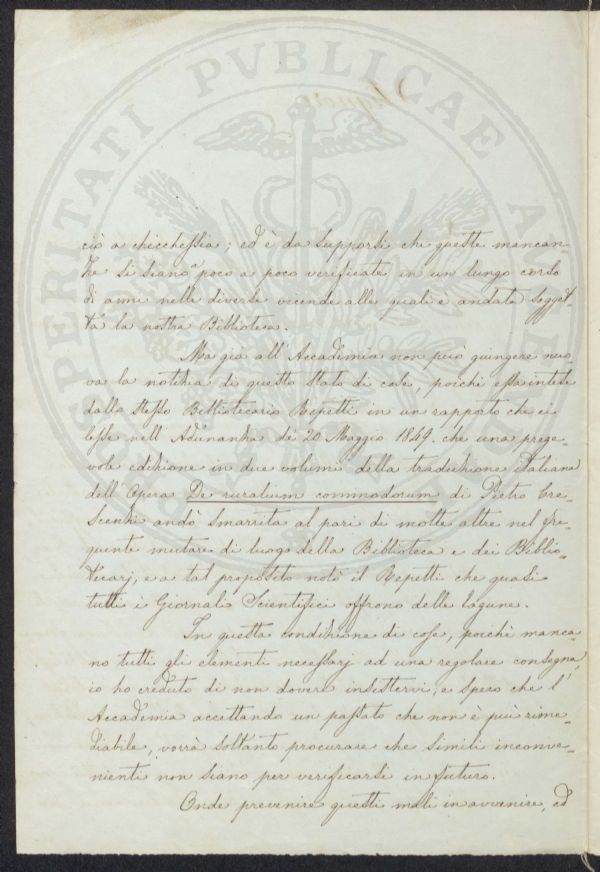 PROSPERITATI PVBLICAE AVGENDAE
ciò a chicchessia; ed è da supporsi che queste mancan-
ze si siano poco a poco verificate in un lungo corso
di anni nelle diverse vicende alle quali e andata sogget-
ta la nostra Biblioteca.
Ma già all'Accademia non può giungere nuo-
va la notizia di questo stato di cose, poichè essa intese
dallo stesso Bibliotecario Repetti in un rapporto che ei
lesse nell'Adunanza de' 20 Maggio 1849. che una prege-
vole edizione in due volumi della traduzione italiana
dell'Opera De ruralium commodorum di Pietro Cre-
scenzi andò smarrita al pari di molte altre nel fre-
quente mutare di luogo della Biblioteca e dei Biblio-
tecarj, e a tal proposito notò il Repetti che quasi
tutti i Giornali Scientifici offrono delle lagune.
In questa condizione di cose, poichè manca-
no tutti gli elementi necessarj ad una regolare consegna,
io ho creduto di non dovere insistervi, e spero che l'
Accademia accettando un passato che non è più rime-
diabile, vorrà soltanto procurare che simili inconve-
nienti non siano per verificarsi in futuro.
Onde prevenire questi mali in avvenire, ed